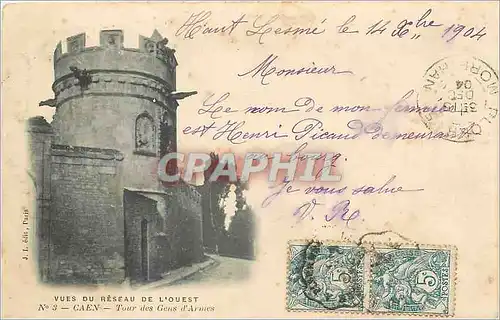 Haut Lesmé le 14 Xbre 1904
Monsieur
Le nom de mon fermier
est Henri Picaud demeurant
au bourg.
Je vous salue
CPARAMA
J. L. édit., Paris
VUES DU RÉSEAU DE L'OUEST
No 3 - CAEN - Tour des Gens d'Armes
5
5